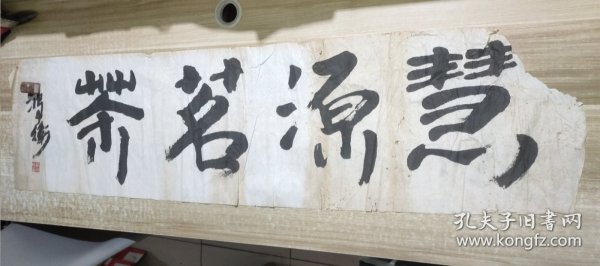 慧源茗茶
孔夫子旧书网
www.kongfz.com